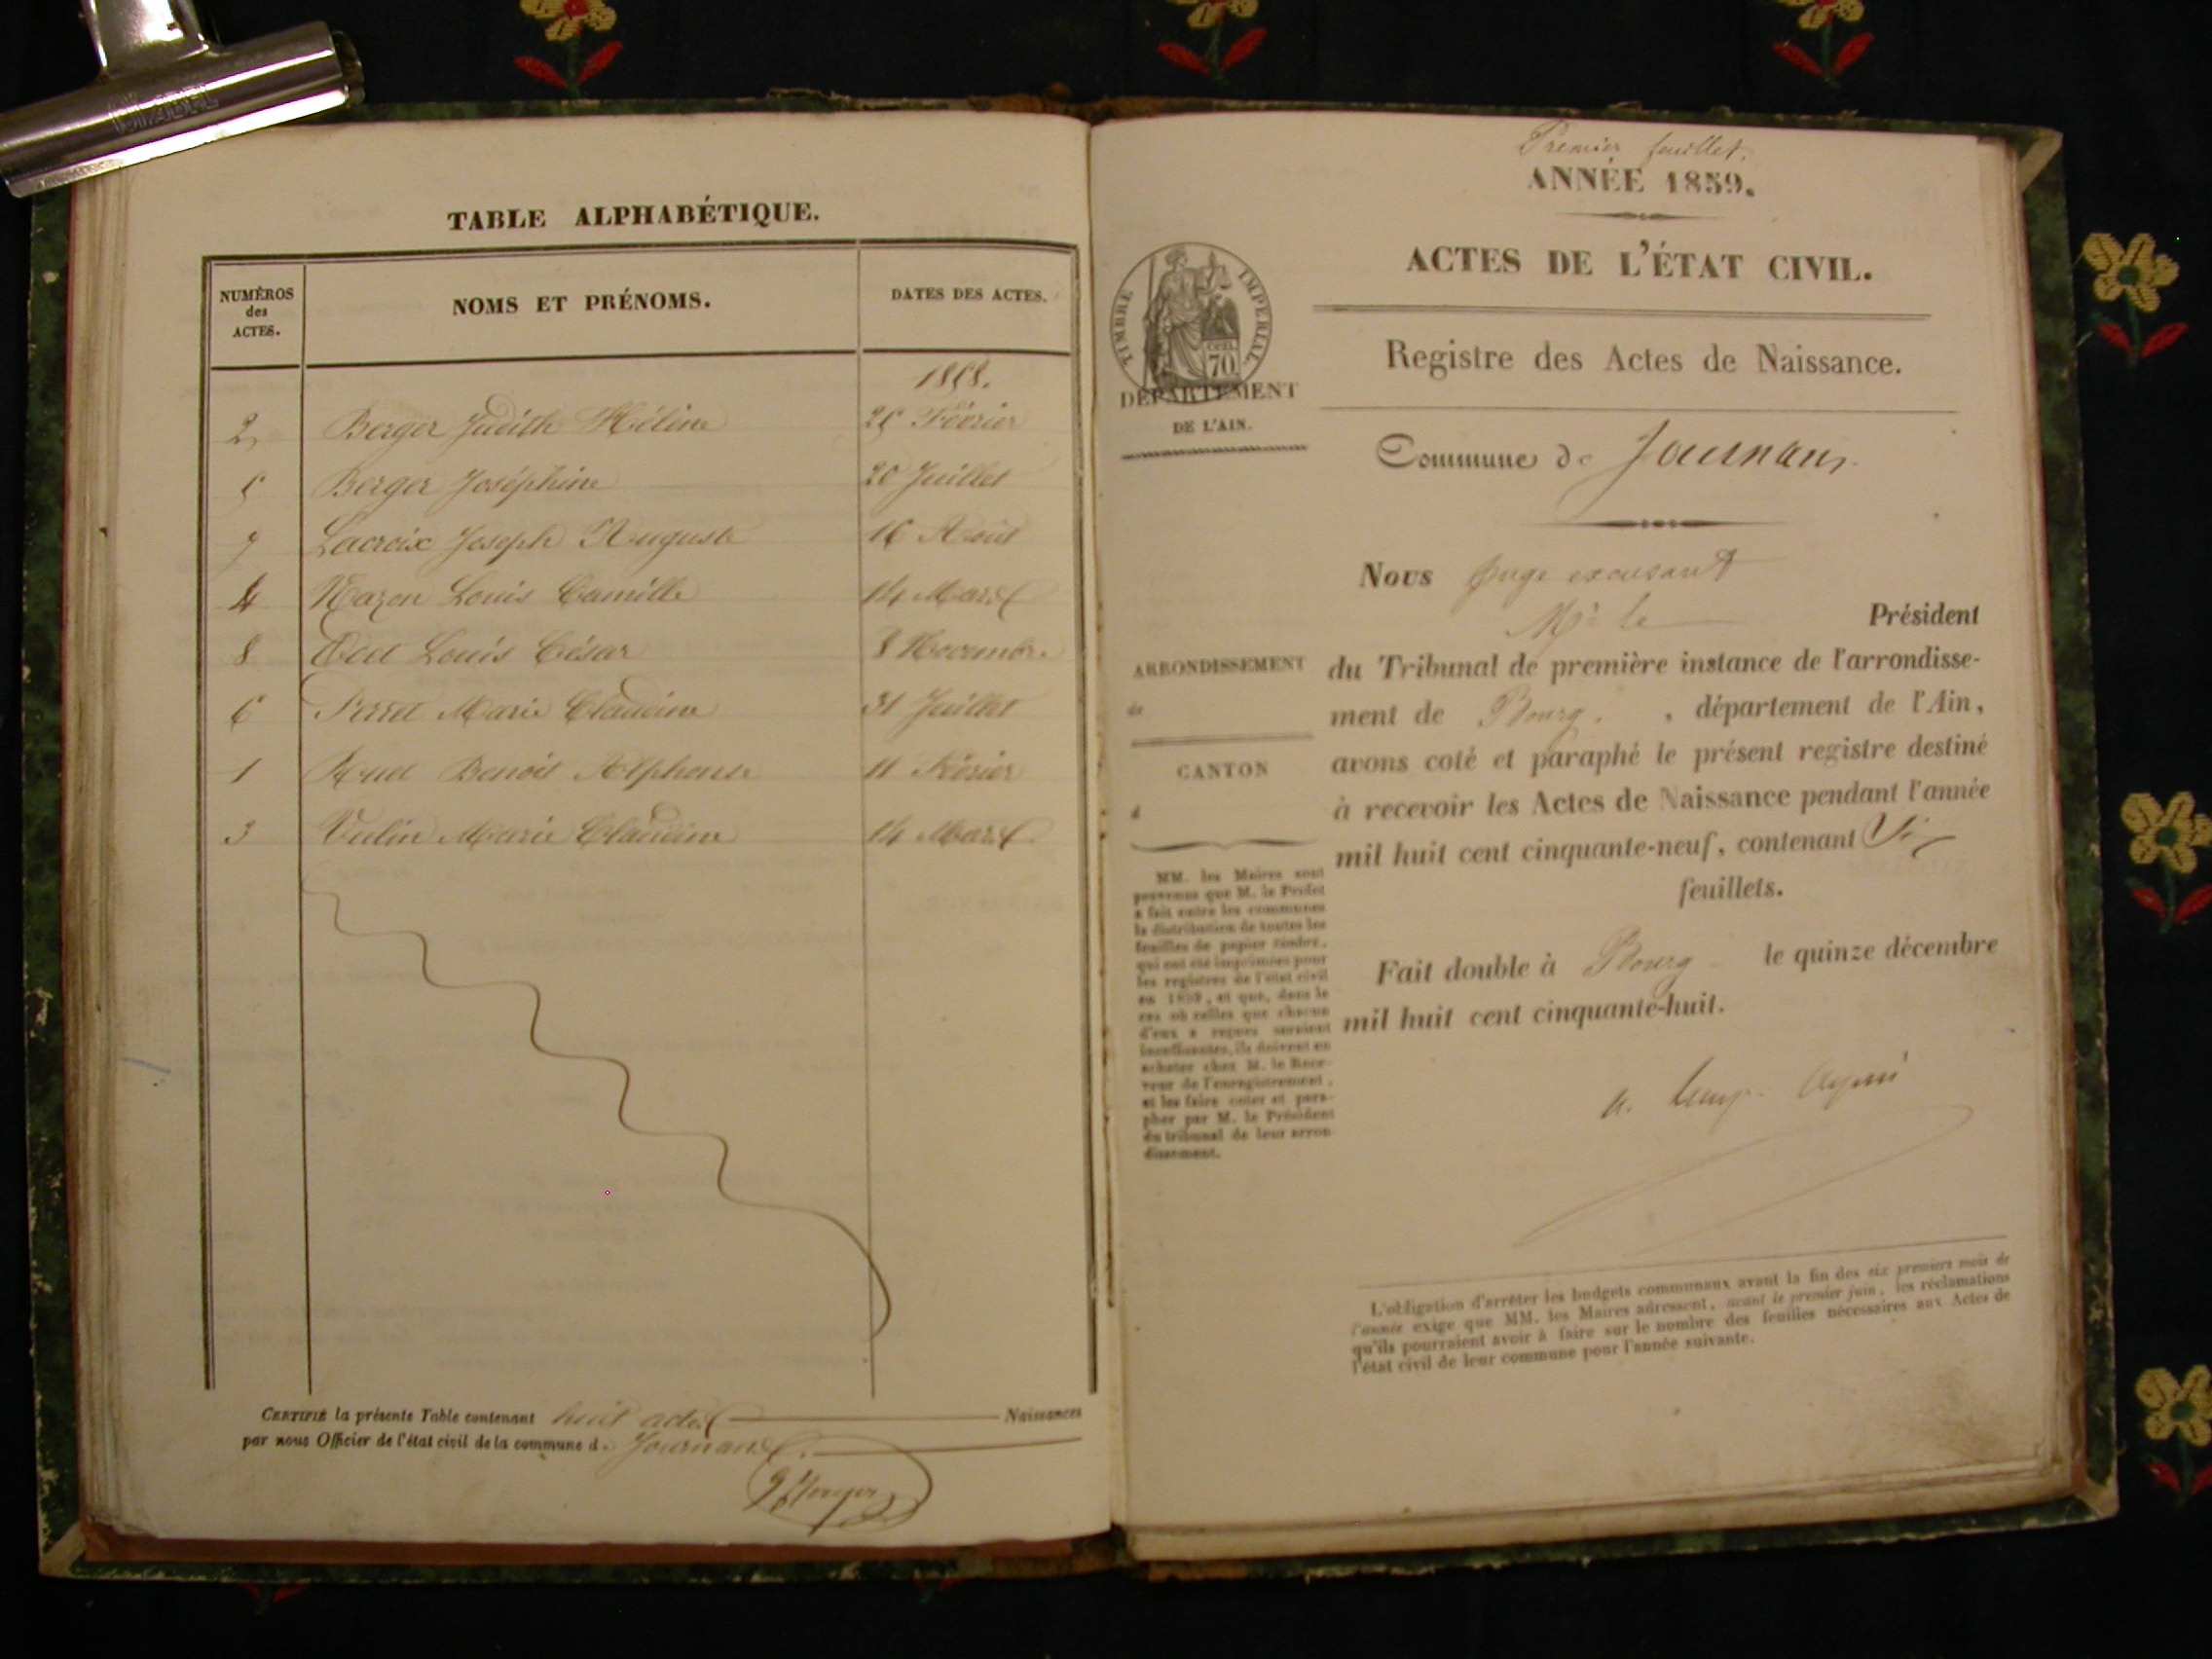 TABLE ALPHABÉTIQUE.
NUMÉROS
des
ACTES.
NOMS ET PRÉNOMS.
DATES DES ACTES.
1858.
2 Berger Judith Hélène 25 Février
5 Berger Joséphine 20 Juillet
7 Lacroix Joseph Auguste 16 Août
4 Louis Camille 14 Mars
8 Louis César 8 Novembre
6 Perret Marie Claudine 31 Juillet
1 Benoit Alphonse 11 Février
3 Vulin Marie Claudine 14 Mars
CERTIFIÉ la présente Table contenant huit actes Naissances
par nous Officier de l'état civil de la commune d. Journans.
Premier feuillet.
ANNÉE 1859.
ACTES DE L'ÉTAT CIVIL.
TIMBRE IMPERIAL
70
DÉPARTEMENT
DE L'AIN.
Registre des Actes de Naissance.
Commune de Journans
Nous Juge
Mr le Président
ARRONDISSEMENT
de
CANTON
d
du Tribunal de première instance de l'arrondisse-
ment de Bourg. , département de l'Ain,
avons coté et paraphé le présent registre destiné
à recevoir les Actes de Naissance pendant l'année
mil huit cent cinquante-neuf, contenant Six
feuillets.
MM. les Maires sont
prévenus que M. le Préfet
a fait entre les communes
la distribution de toutes les
feuilles de papier timbré,
qui ont été imprimées pour
les registres de l'état civil
en 1859, et que, dans le
cas où celles que chacun
d'eux a reçues seraient
insuffisantes, ils doivent en
acheter chez M. le Rece-
veur de l'enregistrement,
et les faire coter et para-
pher par M. le Président
du tribunal de leur arron-
dissement.
Fait double à Bourg le quinze décembre
mil huit cent cinquante-huit.
L'obligation d'arrêter les budgets communaux avant la fin des six premiers mois de
l'année exige que MM. les Maires adressent, avant le premier juin, les réclamations
qu'ils pourraient avoir à faire sur le nombre des feuilles nécessaires aux Actes de
l'état civil de leur commune pour l'année suivante.